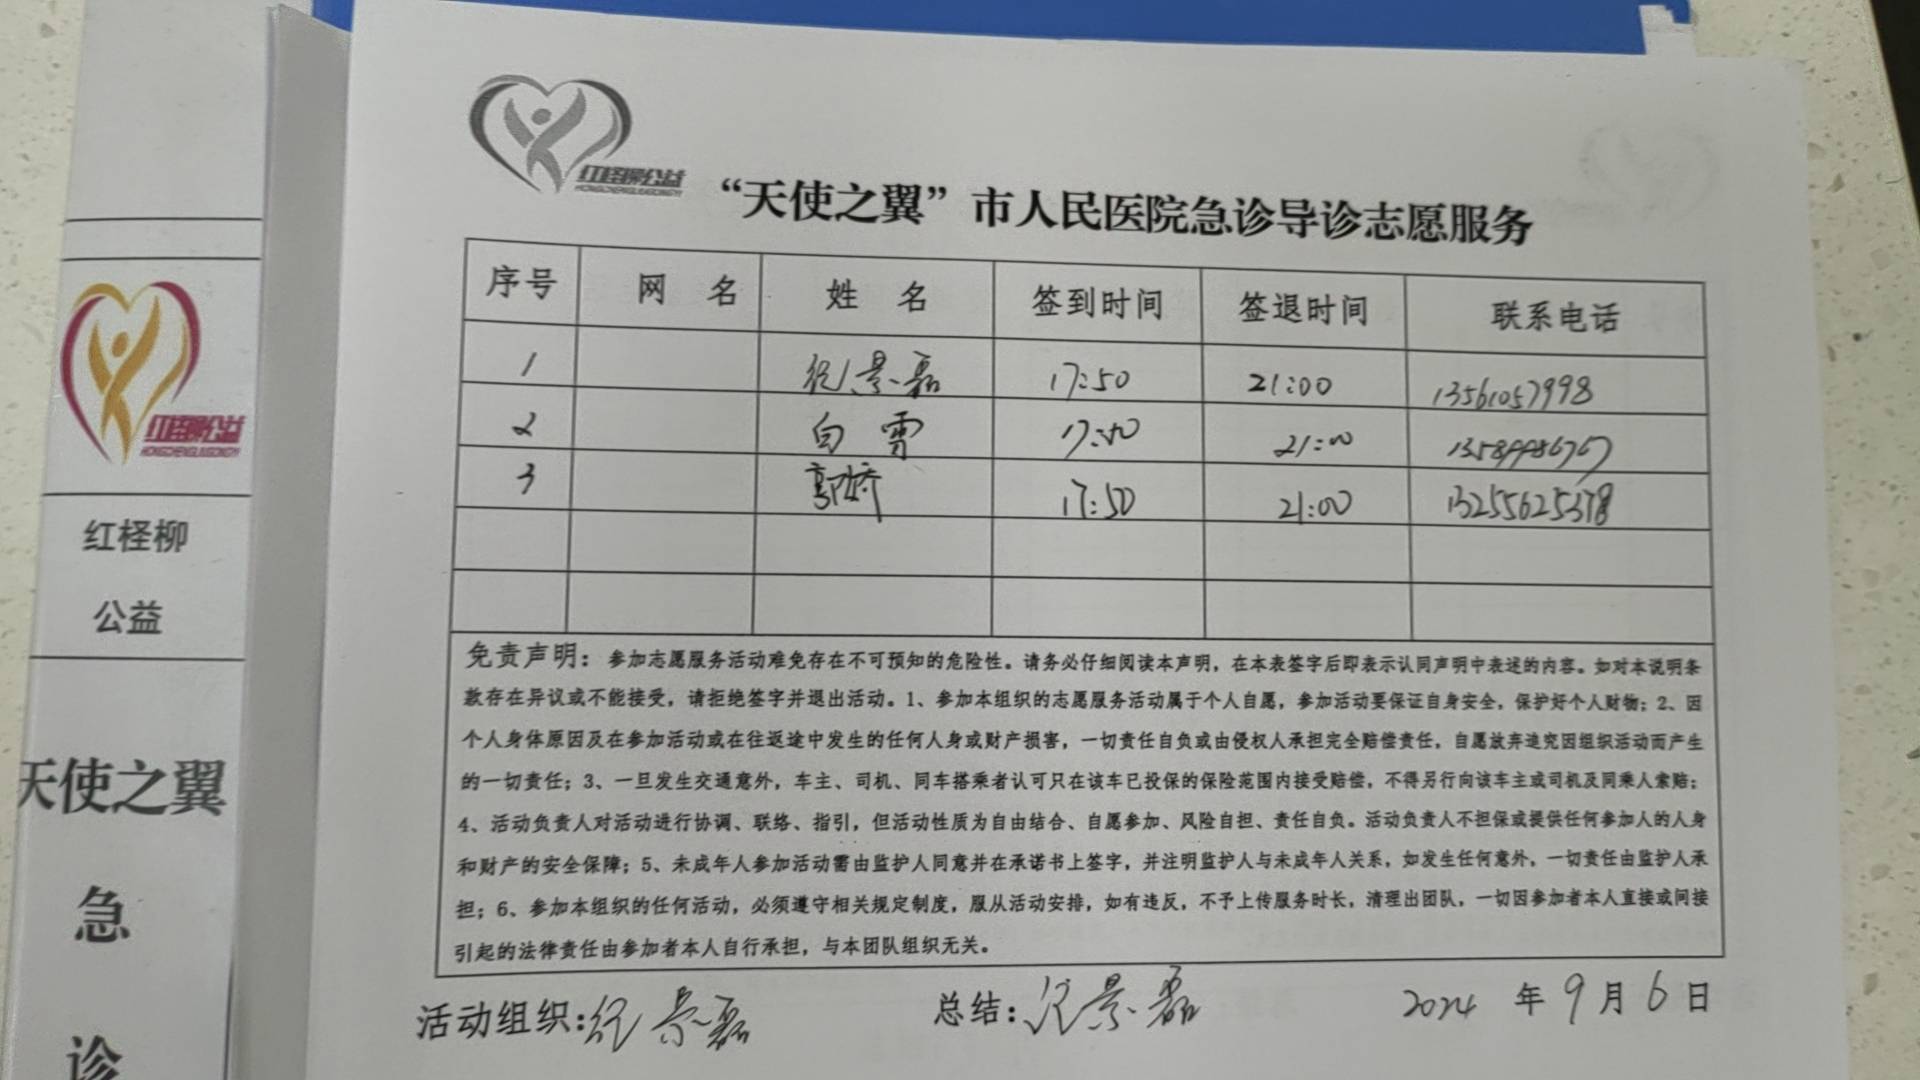 红柽柳公益
HONGCHENGLIUGONGYI
“天使之翼”市人民医院急诊导诊志愿服务
序号 网 名 姓 名 签到时间 签退时间 联系电话
1 纪景磊 17:50 21:00 13561057998
2 白雪 17:50 21:00
3 郭娇 17:50 21:00 13255625378
免责声明：参加志愿服务活动难免存在不可预知的危险性。请务必仔细阅读本声明，在本表签字后即表示认同声明中表述的内容。如对本说明条
款存在异议或不能接受，请拒绝签字并退出活动。1、参加本组织的志愿服务活动属于个人自愿，参加活动要保证自身安全，保护好个人财物；2、因
个人身体原因及在参加活动或在往返途中发生的任何人身或财产损害，一切责任自负或由侵权人承担完全赔偿责任，自愿放弃追究因组织活动而产生
的一切责任；3、一旦发生交通意外，车主、司机、同车搭乘者认可只在该车已投保的保险范围内接受赔偿，不得另行向该车主或司机及同乘人索赔；
4、活动负责人对活动进行协调、联络、指引，但活动性质为自由结合、自愿参加、风险自担、责任自负。活动负责人不担保或提供任何参加人的人身
和财产的安全保障；5、未成年人参加活动需由监护人同意并在承诺书上签字，并注明监护人与未成年人关系，如发生任何意外，一切责任由监护人承
担；6、参加本组织的任何活动，必须遵守相关规定制度，服从活动安排，如有违反，不予上传服务时长，清理出团队，一切因参加者本人直接或间接
引起的法律责任由参加者本人自行承担，与本团队组织无关。
活动组织：纪景磊 总结：纪景磊 2024 年 9 月 6 日
红柽柳公益
HONGCHENGLIUGONGYI
红柽柳
公益
天使之翼
急
诊